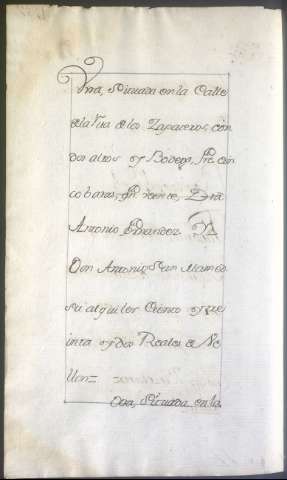 Vna, Situada en la Calle
de la Rua de los Zapateros, con
dos altos y Bodega, fte cin
co baras,
Antonio Fernandez
Don Antonio Sn Mamed
su alquiler Ciento y tre
inta y dos Reales de Ve
llon=
Otra, Situada en la